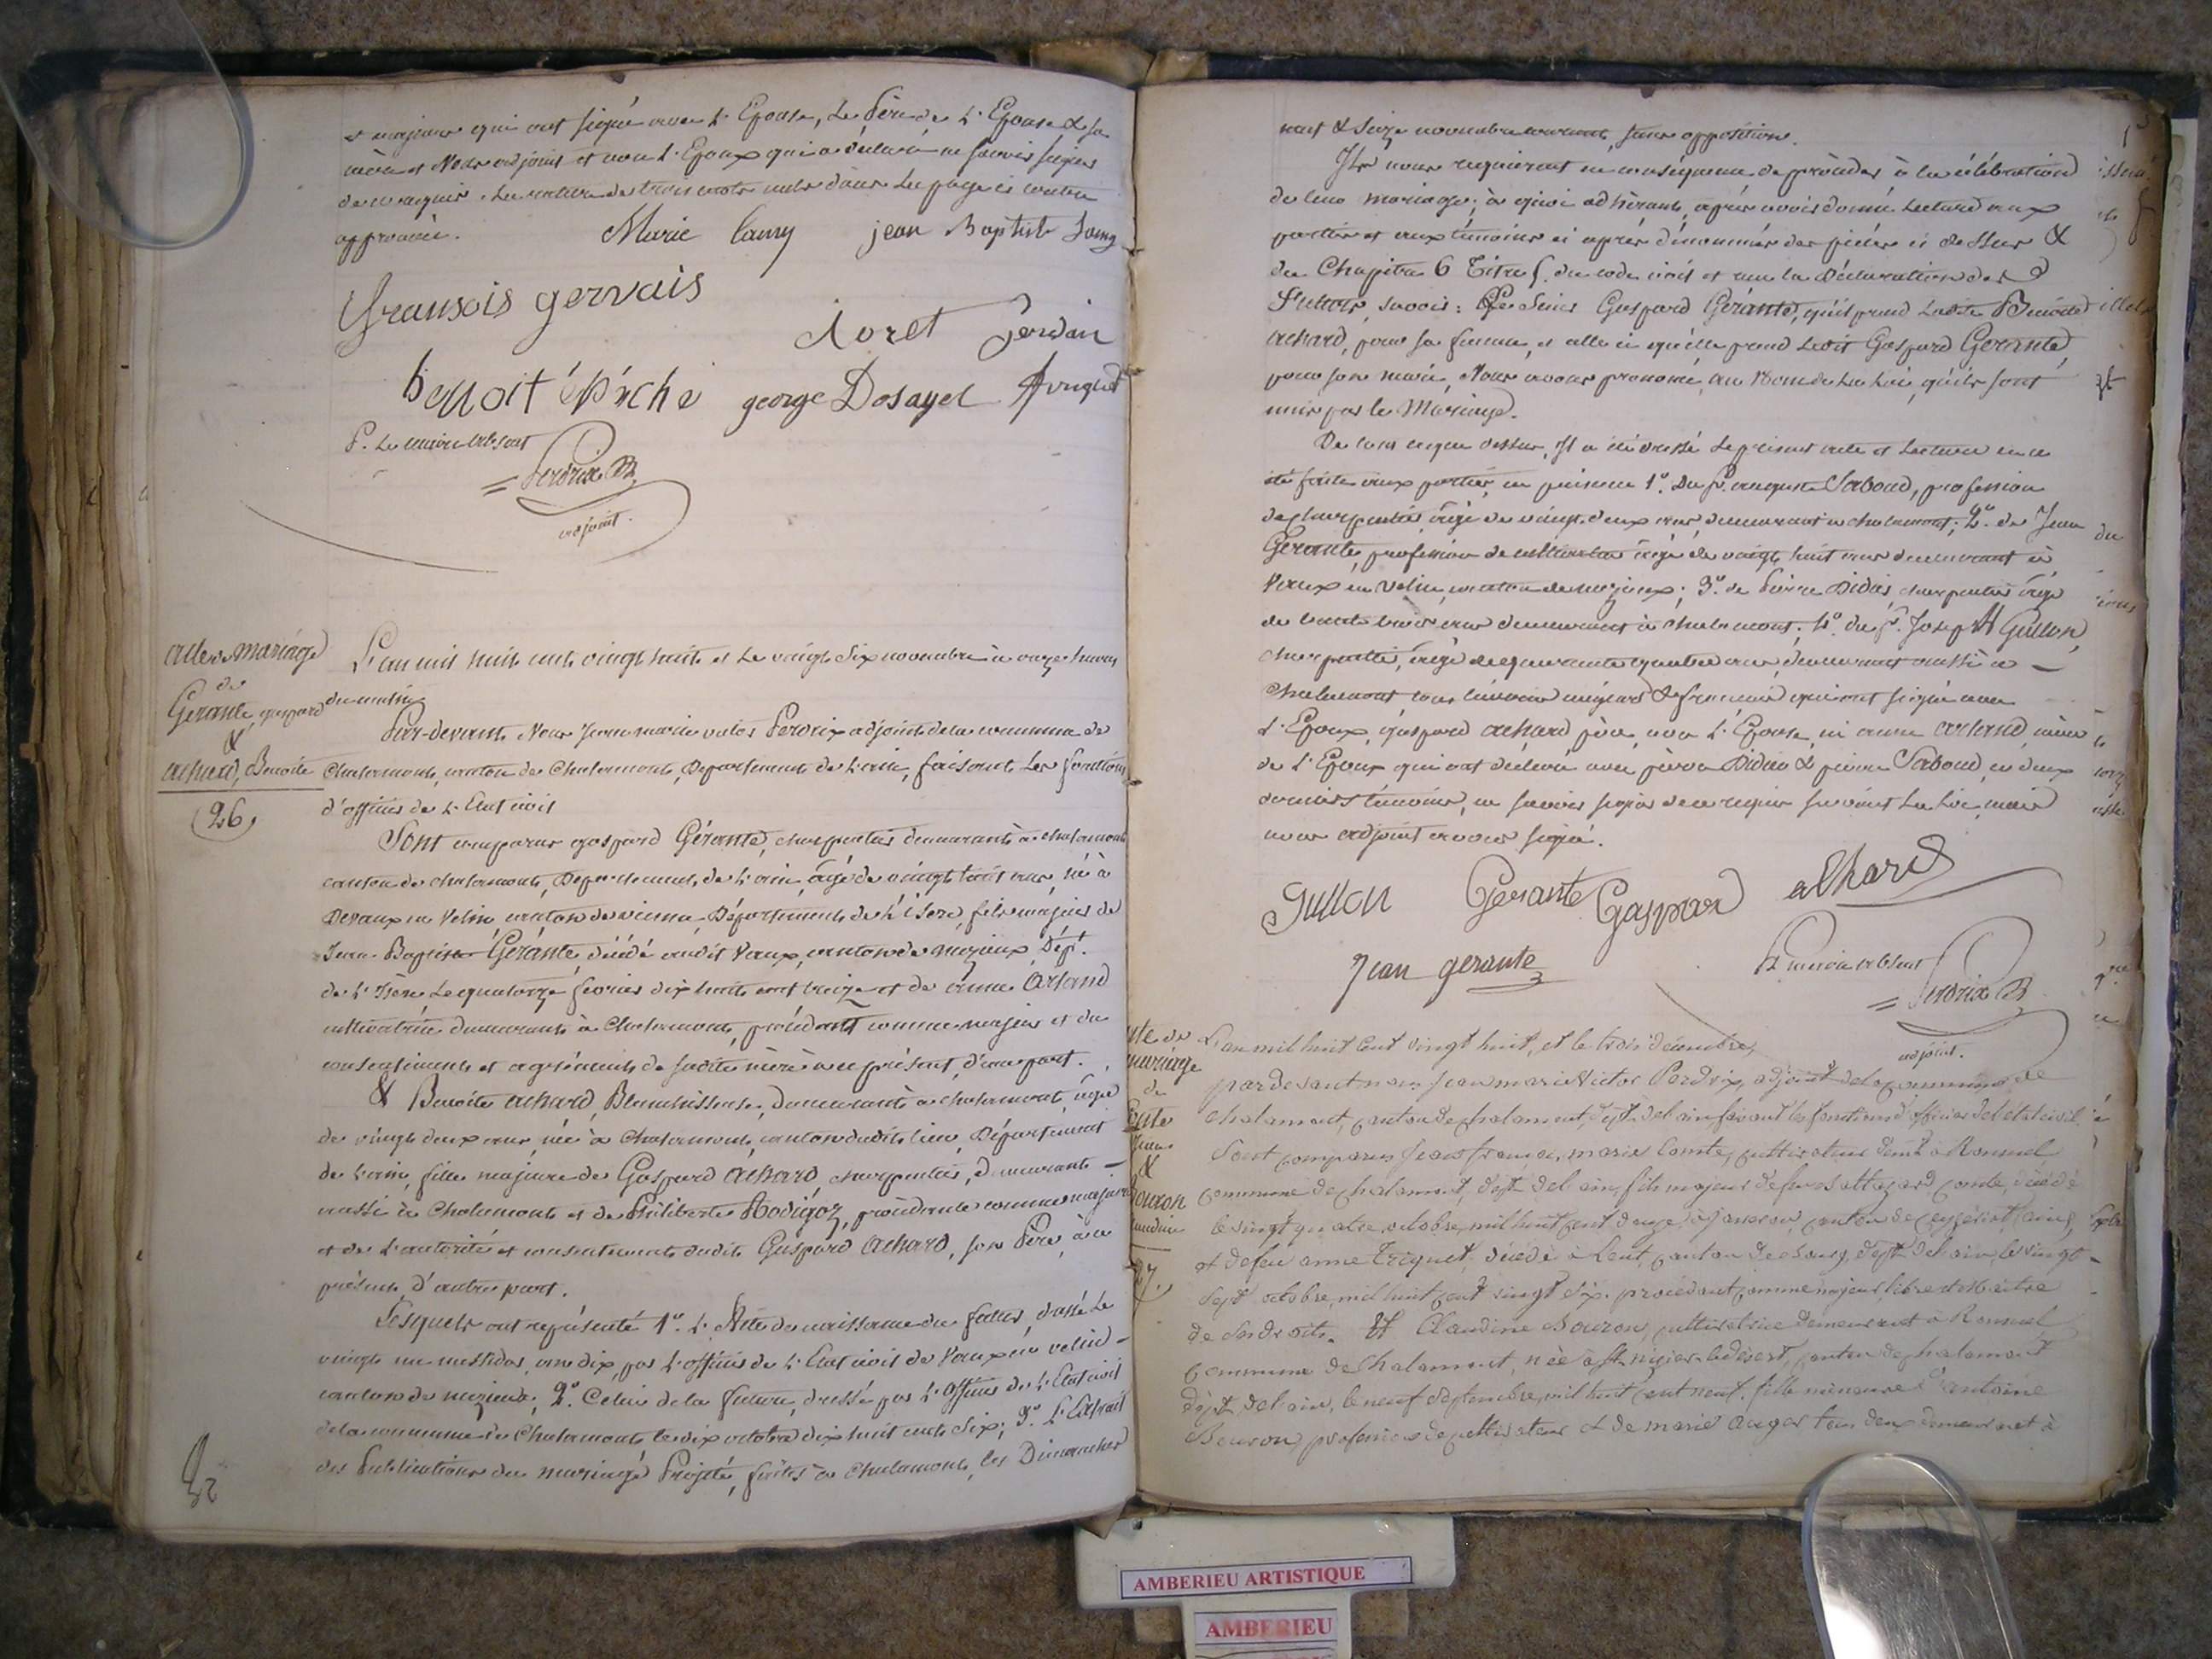 et majeurs qui ont signé avec L'Epouse, Le Père de L'Epouse & sa
mère et Nous adjoint et non L'Epoux qui a déclaré ne savoir signer
de ce requis. La rature de trois mots nuls dans La page ci contre
approuvée. Marie Jamy jean Baptiste Jamy
fransois gervais
Loret Jordan
benoit Péche george Dosayet
P. Le maire absent
Perdrix
adjoint.
acte de mariage
de
Gérante, gaspard
&
achard, Benoite
26
L'an mil huit cent vingt huit et Le vingt six novembre à onze heures
du matin
Par-devant Nous Jean marie victor Perdrix adjoint de la commune de
Chalamont, canton de Chalamont, Département de L'ain, faisant Les fonctions
d'officier de L'Etat civil
Sont comparus gaspard Gérante, charpentier demeurant à chalamont
canton de chalamont, Département de L'ain, âgé de vingt huit ans, né à
Devaux en Velin, canton de vienne, Département de L'isère, fils majeur de
Jean-Baptiste Gérante, décédé audit Vaux, canton de mezieux, Dépt.
de L'Isère Le quatorze février dix huit cent treize et de anne Arland
cultivatrice demeurant à Chalamont, procédant comme majeur et du
consentement et agrément de sadite mère à ce présent, d'une part.
& Benoite achard, Blanchisseuse, demeurante à chalamont, âgée
de vingt deux ans, née à Chalamont, canton dudit lieu, Département
de L'ain, fille majeure de Gaspard Achard, charpentier, demeurant
aussi à Chalamont et de Philiberte Rodigoz, procédante comme majeure
et de L'autorité et consentement dudit Gaspard Achard, son Père, à ce
présent, d'autre part.
Lesquels ont représenté 1°. L'Acte de naissance du futur, dressé Le
vingt un messidor, an dix, par L'officier de L'Etat civil de Vaux en velin
canton de mezieux; 2°. Celui de la future, dressé par L'officier de L'Etat civil
de la commune de Chalamont le dix octobre dix huit cent six; 3°. L'Extrait
des Publications du mariage Projeté, faites à Chalamont, les Dimanches
neuf & seize novembre courant, sans opposition.
Ils nous requièrent en conséquence de procéder à la célébration
de leur mariage; à quoi adhérant, après avoir donné Lecture aux
parties et aux témoins ci après dénommés des pièces ci dessus &
du Chapitre 6 Titre 5. du code civil et vu la Déclaration des
Futurs, savoir: Le sieur Gaspard Gérante, qu'il prend Ladite Benoite
achard, pour sa femme, et celle ci qu'elle prend Ledit Gaspard Gerante,
pour son mari, Nous avons prononcé, au Nom de La Loi, qu'ils sont
unis par le Mariage.
De tout ce que dessus, Il a été dressé Le présent acte et Lecture en a
été faite aux parties, en présence 1°. Du Sr. auguste Saboud, profession
de charpentier, âgé de vingt-deux ans demeurant à chalamont; 2°. de Jean
Gerante, profession de cultivateur âgé de vingt huit ans demeurant à
Vaux en Velin, canton de mezieux; 3°. de Pierre Didier, charpentier âgé
de trente trois ans demeurant à chalamont; 4°. du Sr. Joseph Gullon,
charpentier, âgé de quarante quatre ans, demeurant aussi à
Chalamont, tous témoins majeurs & français qui ont signé avec
L'Epoux, gaspard achard père, non L'Epouse, ni anne Arland, mère
de L'Epoux qui ont déclaré avec pierre Didier & pierre Saboud, ces deux
derniers témoins, ne savoir signer de ce requis suivant La Loi, mais
nous adjoint avons signé.
Gullon Gerante Gaspard achard
Jean gerante
P. Le maire absent
Perdrix
adjoint.
acte de
mariage
de
Comte
Jean
&
Bouron
Claudine
27.
L'an mil huit cent vingt huit, et le trois décembre,
pardevant nous Jean marie Victor Perdrix, adjoint de la commune de
Chalamont, canton de chalamont, dépt. de l'ain faisant les fonctions d'officier de l'état civil
Sont comparus Jean françois marie Comte, cultivateur demt. à Ronzuel
commune de chalamont, dépt. de l'ain, fils majeur de feu Balthazard Comte, décédé
le vingt quatre octobre, mil huit cent douze, à Jasseron, canton de ceyzériat, (ain),
et de feu anne Triquet, décédé à Lent, canton de Bourg, dépt. de l'ain, le vingt-
sept octobre, mil huit cent vingt six. procédant comme majeur libre et maitre
de ses droits. Et Claudine Bouron, cultivatrice demeurant à Ronzuel
commune de Chalamont, née à St. nizier-le désert, canton de chalamont
dépt. de l'ain, le neuf septembre, mil huit cent neuf. fille mineure d'antoine
Bouron, profession de cultivateur et de marie Auger tous deux demeurant à
AMBERIEU ARTISTIQUE
AMBERIEU